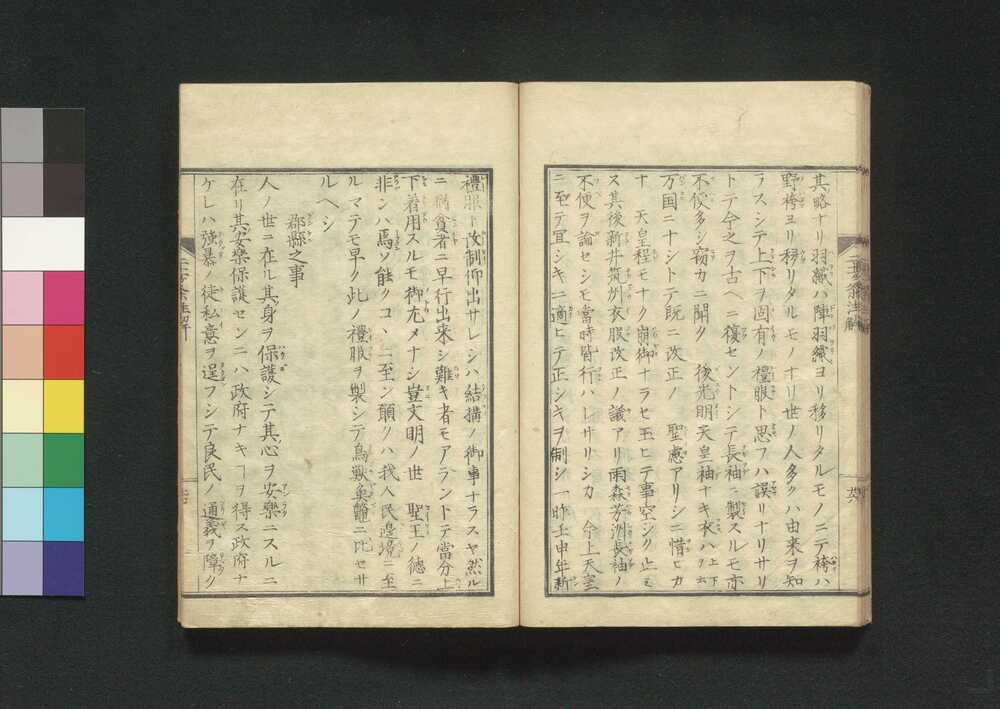 其略ナリ羽織ハ陣羽織ヨリ移リタルモノニテ袴ハ
野袴ヨリ移リタルモノナリ世ノ人多クハ由来ヲ知
ラスシテ上下ヲ固有ノ禮服ト思フハ誤リナリサリ
トテ今之ヲ古ヘニ復セントシテ長袖ニ製スルモ亦
不便多シ竊カニ聞ク 後光明天皇袖ナキ衣ハ
万国ニナシトテ既ニ改正ノ 聖慮アリシニ惜ヒカ
ナ 天皇程モナク崩御ナラセ玉ヒテ事空シク止ミ
ス其後新井筑洲衣服改正ノ議アリ雨森芳洲長袖ノ
不便ヲ論セシモ當時皆行ハレサリシカ 今上天皇
ニ至テ宜シキニ適ヒテ正シキヲ制シ 昨壬申年新
禮服ト改制仰出サレシハ結搆ノ御事ナラスヤ然ル
ニ猶貧者ニ早行出来シ難キ者モアラントテ當分上
下着用スルモ御尤メナシ豈文明ノ世 聖王ノ徳ニ
非ンハ焉ソ能クコヽニ至ン願クハ我人民邊境ニ至
ルマテモ早ク此ノ禮服ヲ製シテ鳥獣魚鼈ニ比セサ
ルヘシ
郡縣之事
人ノ世ニ在ル其身ヲ保護シテ其心ヲ安樂ニスルニ
在リ其安樂保護センニハ政府ナキヿヲ得ス政府ナ
ケレハ強暴ノ徒私意ヲ逞フシテ良民ノ通義ヲ障ク